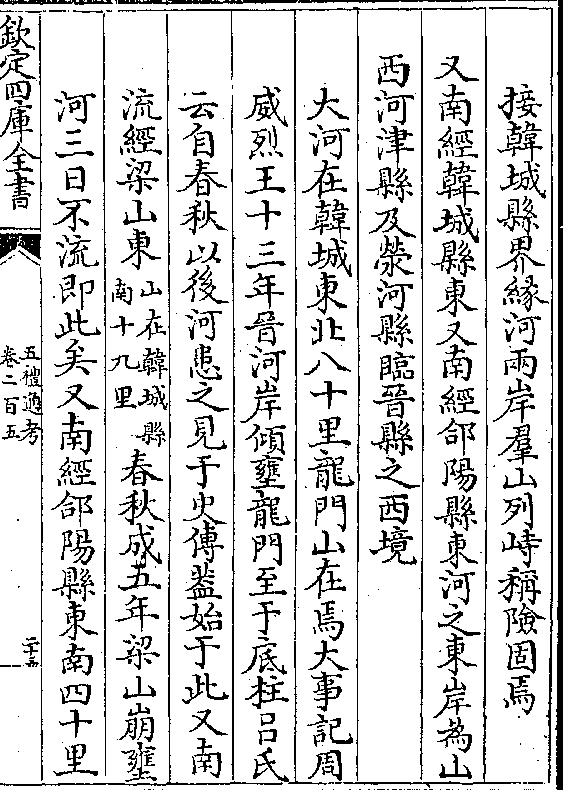 接韓城縣界緣河兩岸羣山列峙稱險固焉
又南經韓城縣東又南經郃陽縣東河之東岸為山
西河津縣及滎河縣臨晉縣之西境
大河在韓城東北八十里龍門山在焉大事記周
威烈王十三年晉河岸傾壅龍門至于底柱吕氏
云自春秋以後河患之見于史傳葢始于此又南
流經梁山東山在韓城縣南十九里春秋成五年梁山崩壅
河三日不流即此矣又南經郃陽縣東南四十里
欽定四庫全書
五禮通考
卷二百五
二十五